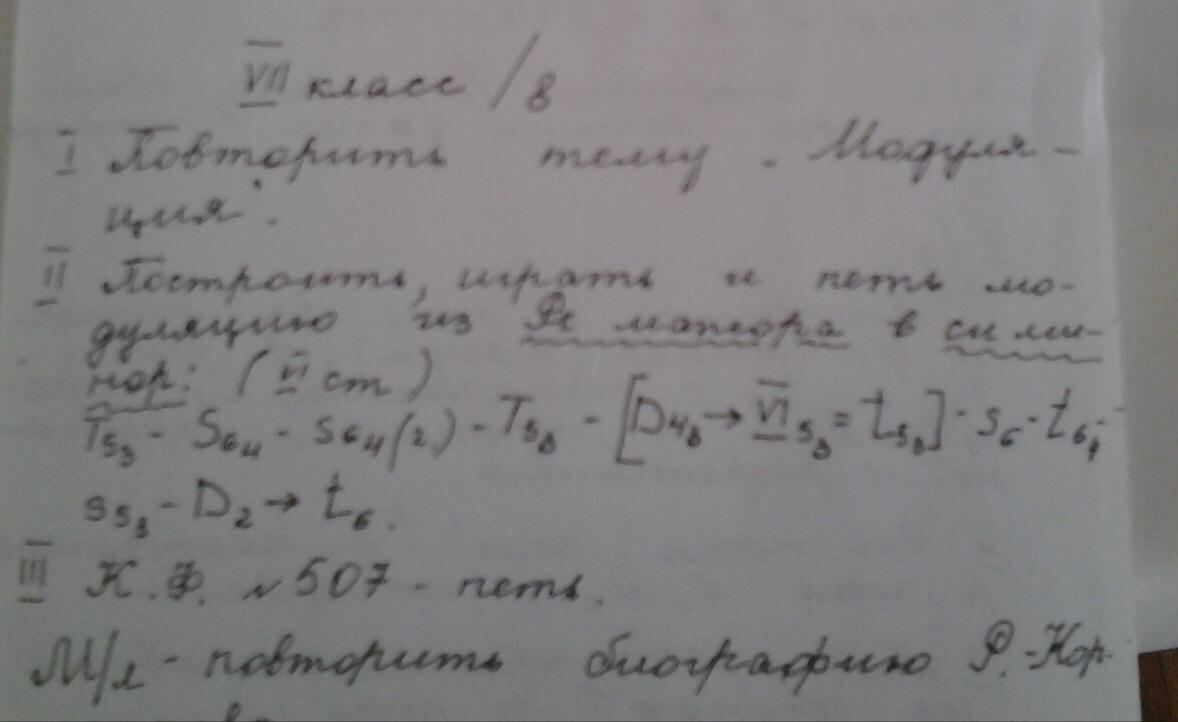 VII класс / 8
I Повторить тему „Модуля-
ция".
II Построить, играть и петь мо-
дуляцию из Ре мажора в си ми-
нор: (VI ст)
T53 - S64 - s64(г.) - T53 - [D43 → VI53 = t53] - s6 - t64 -
s53 - D2 → t6.
III К.Ф. №507 - петь.
М/л - повторить биографию Р.-Кор-